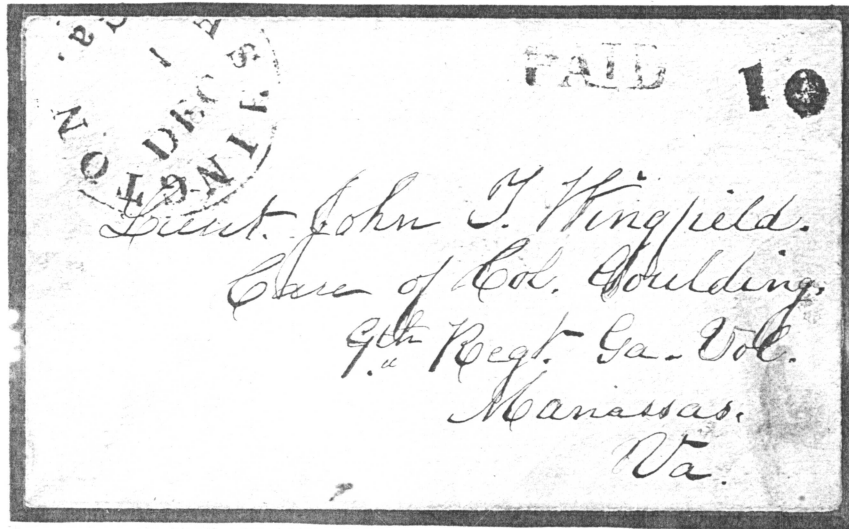 WASHINGTON Ga.
DEC
PAID
10
Lieut. John T. Wingfield.
Care of Col. Goulding,
9th Regt. Ga. Vol.
Manassas.
Va.